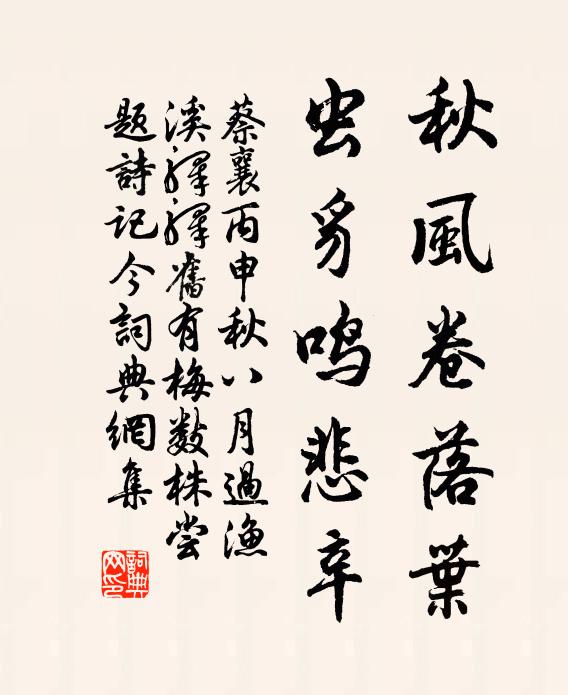 秋風卷落葉
虫豸鳴悲辛
蔡襄丙申秋八月過漁
溪驛驛舊有梅數株嘗
題詩記今詞典網集
詞典
网印